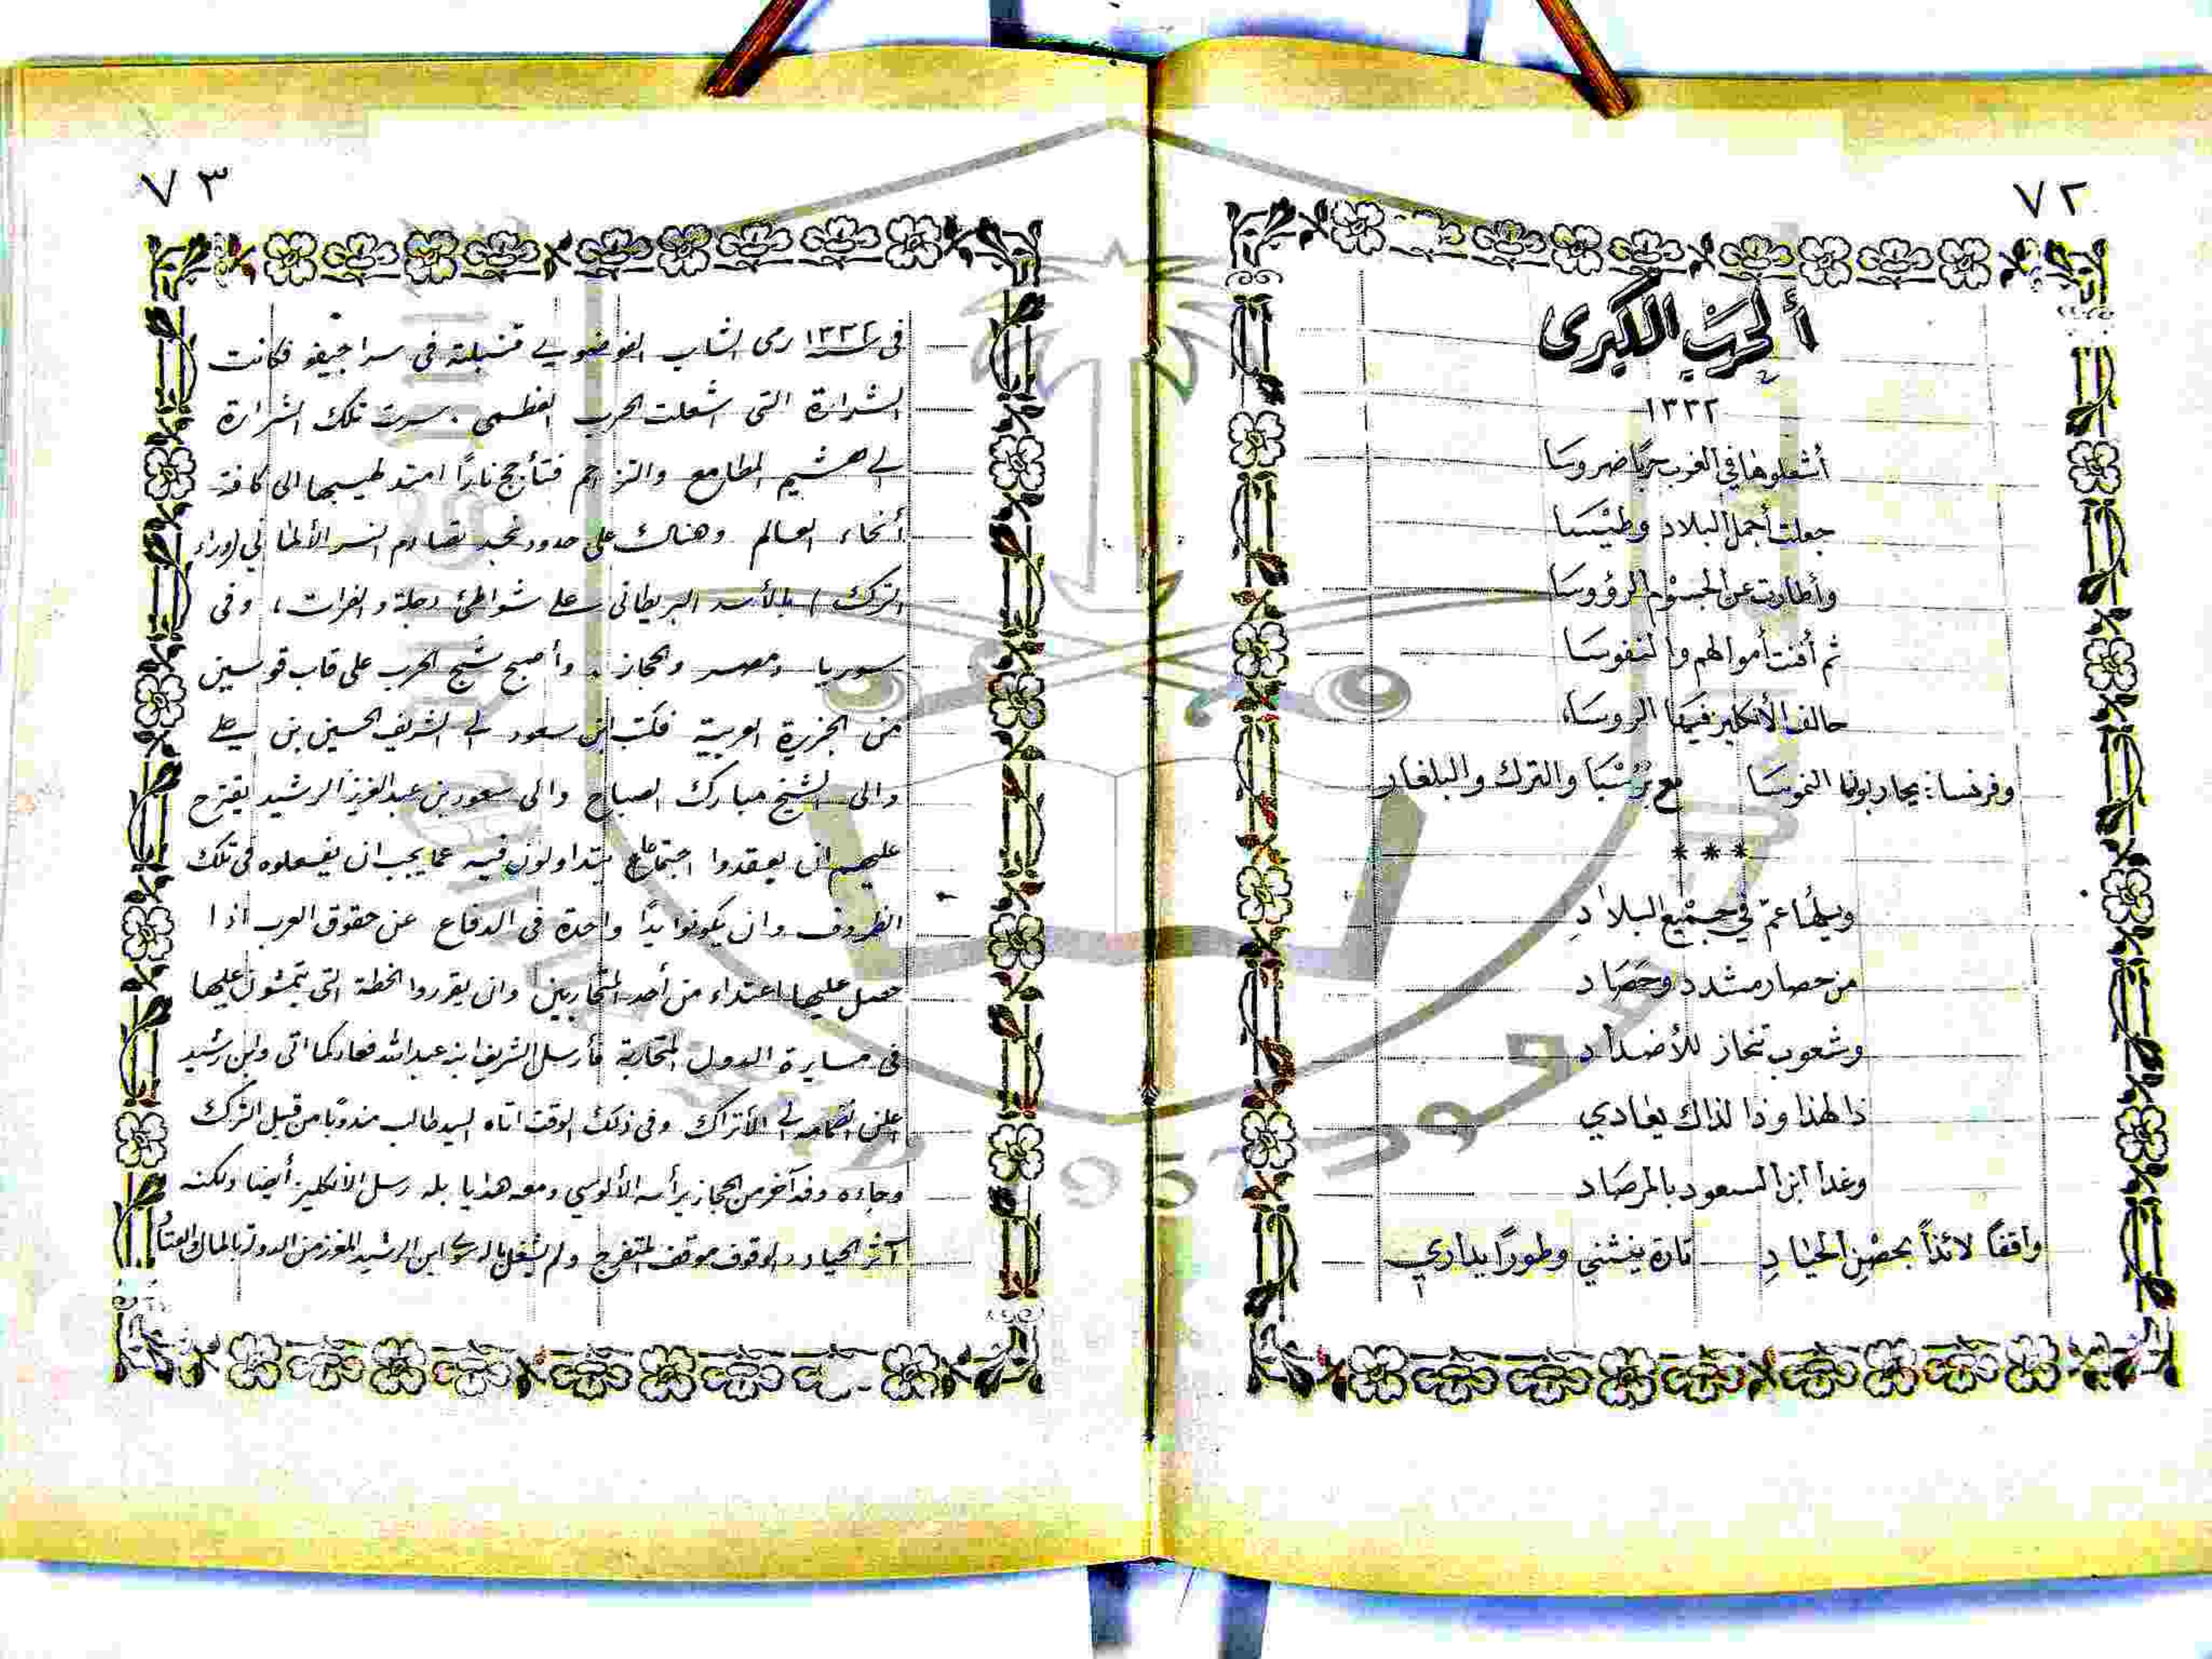 ٧٢
ألحرب الكبرى
١٣٣٢
أشعلوها في الغرب حربًا ضروسَا
جعلت أجمل البلاد وطيسَا
وأطارت عن الجسوم الرؤوسَا
ثم أفنت أموالهم والنفوسَا
حالف الأنكليز فيها الروسَا،
وفرنسا: يحاربونها النموسَا مع بُرُسْيَا والترك والبلغار
***
وبلهَا عمّ في جميع البلادِ
من حصار مشدد وحَصَاد
وشعوب تنحاز للأضداد
ذا لهذا وذا لذاك يعادي
وغدا ابن السعود بالمرصَاد
واقفاً لائذاً بحصْنِ الحيَادِ تارة ينثني وطوراً يداري
٧٣
فى سنة ١٣٣٢ رمى الشاب الفوضوي قنبلته فى سراجيفو فكانت
الشرارة التى اشعلت الحرب العظمى . سرت تلك الشرارة
الى هشيم المطامع والتزاحم فتأجج ناراً امتد لهيبها الى كافة
أنحاء العالم وهناك على حدود نجد تصادم النسر الألمانى (وراء
الترك) بالأسد البريطانى على شواطئ دجلة والفرات، وفى
سوريا ومصر والحجاز . وأصبح شبح الحرب على قاب قوسين
من الجزيرة العربية فكتب ابن سعود الى الشريف الحسين بن علي
والى الشيخ مبارك الصباح والى سعود بن عبدالعزيز الرشيد يقترح
عليهم ان يعقدوا اجتماع يتداولون فيه عما يجب ان يفعلوه فى تلك
الظروف وان يكونوا يدًا واحدة فى الدفاع عن حقوق العرب اذا
حصل عليها اعتداء من أحد المتحاربين وان يقرروا الخطة التى يتمشون عليها
فى مسايرة الدول المتحاربة فأرسل الشريف ابنه عبدالله فعاد كما اتى وابن رشيد
اعلن انضمامه الى الأتراك وفى ذلك الوقت اتاه السيد طالب مندوبًا من قبل الترك
وجاءه وفد آخر من الحجاز يرأسه الألوسي ومعه هدايا بله رسل الانكليز أيضا ولكنه
آثر الحياد والوقوف موقف المتفرج ولم يشغل باله سوى ابن الرشيد المعزز من الدولة بالمال والعتاد